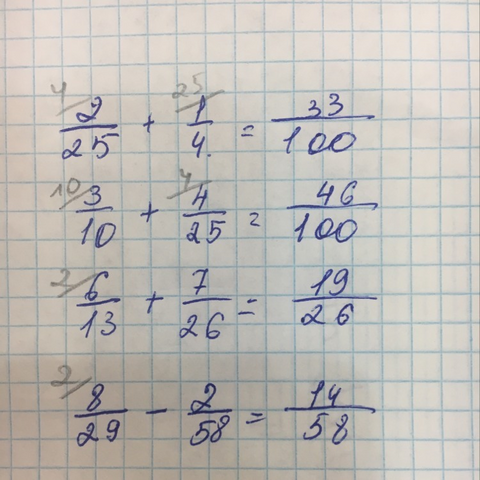 4/ 25/
2/25 + 1/4. = 33/100
10/ 4/
3/10 + 4/25 = 46/100
2/
6/13 + 7/26 = 19/26
2/
8/29 - 2/58 = 14/58